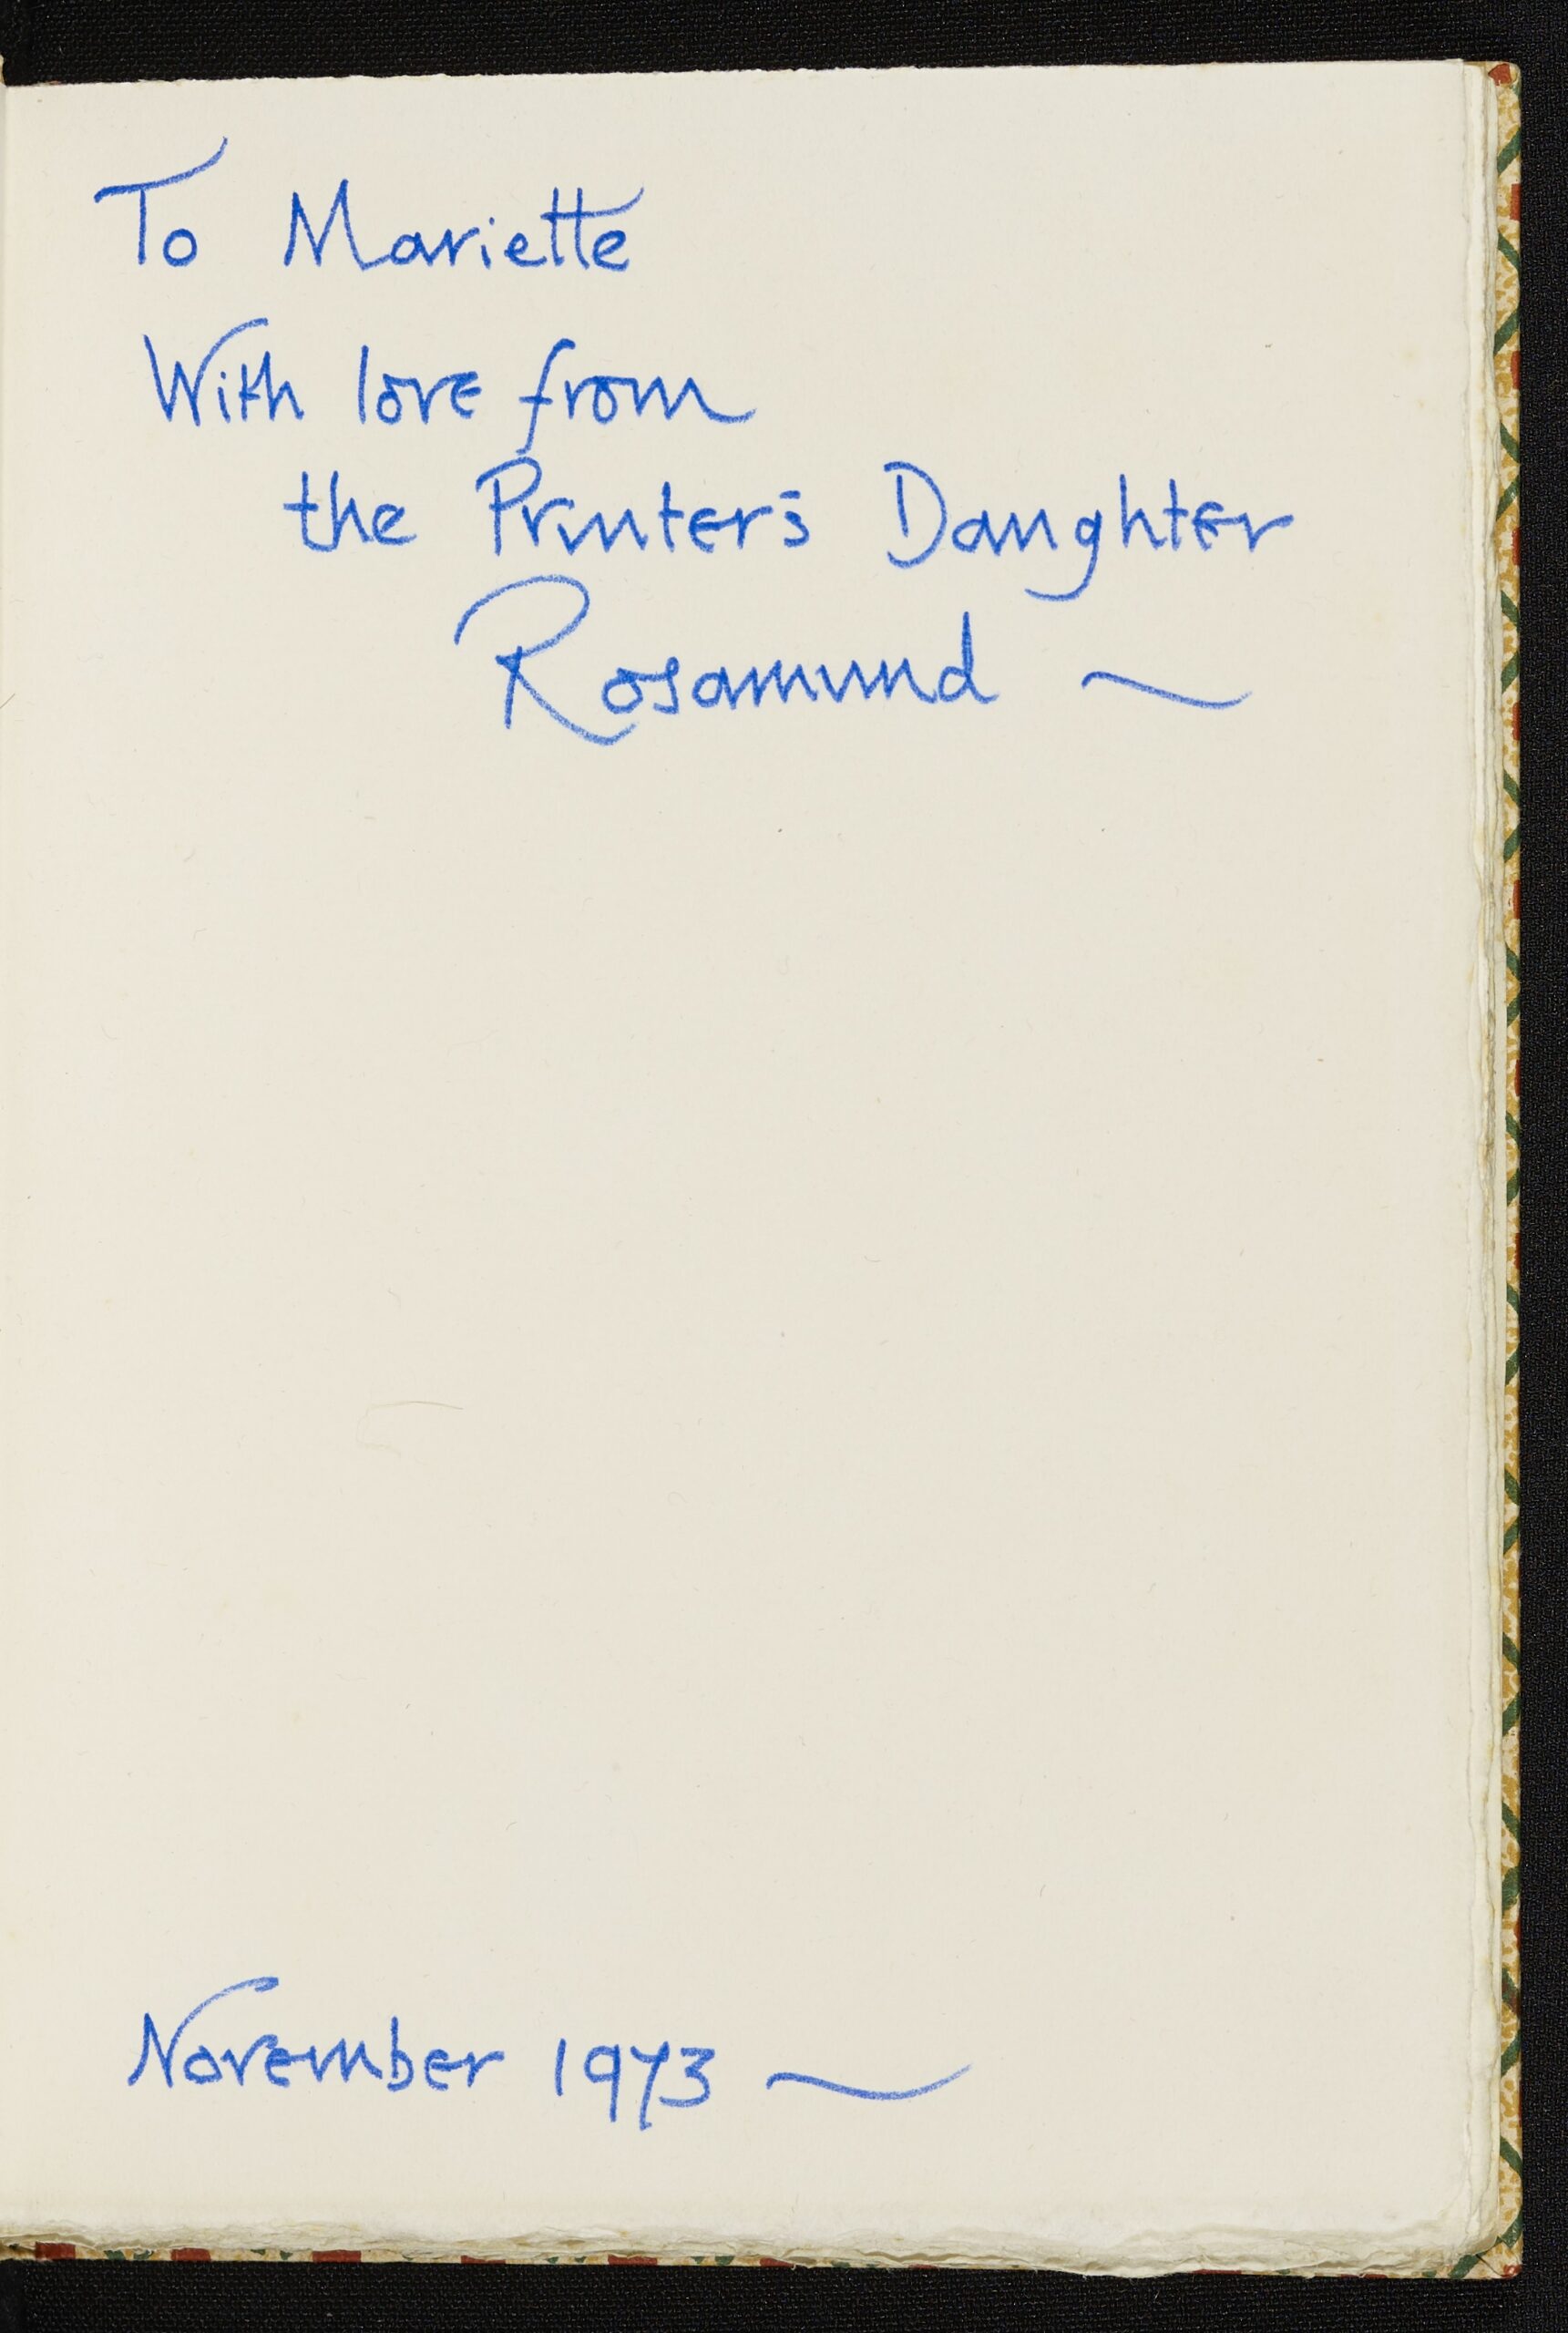 To Mariette
With love from
the Printer's Daughter
Rosamund ~
November 1973 ~